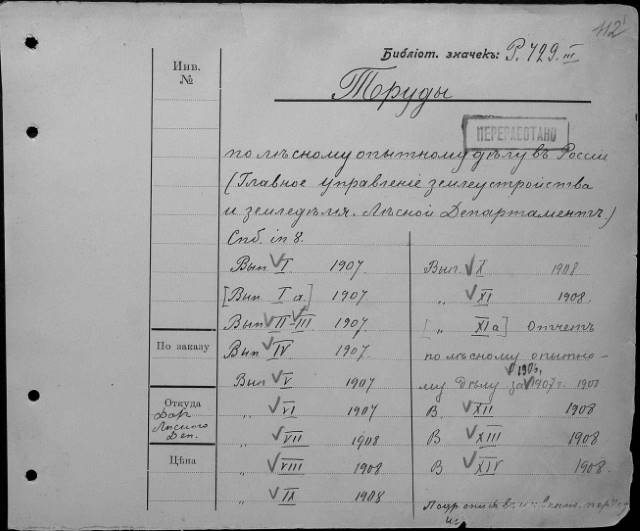 112
Библіот. значекъ: Р. 729. III
Инв.
№
Труды
ПЕРЕРАБОТАНО
по лѣсному опытному дѣлу въ Россіи
(Главное управленіе землеустройства
и земледѣлія. Лѣсной Департаментъ.)
Спб. in 8.
Вып √ I 1907.
[Вып I а.] 1907.
Вып √ II √-III 1907.
Вып √ IV 1907.
Вып √ V 1907
„ √ VI 1907
„ √ VII 1908
„ √ VIII 1908
„ √ IX 1908
Вып √ X 1908
„ √ XI 1908.
[ „ XIa] Отчетъ
по лѣсному опытно-
му дѣлу за √ 1906, √ 1907 г.
В √ XII 1908
В √ XIII 1908.
В √ XIV 1908.
По заказу
Откуда
Дар
Лѣсного
Деп.
Цѣна